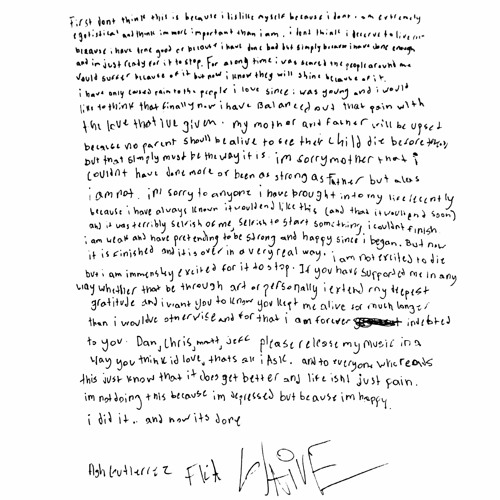 First dont think this is because i dislike myself because i dont. am extremely
egotistical and think im more important than i am. i dont think i deserve to live
because i have been good or because i have done bad but simply because i have done enough
and im just ready for it to stop. For a long time i was scared the people around me
would suffer because of it but now i know they will shine because of it.
i have only caused pain to the people i love since i was young and i would
like to think that finally now i have Balanced out that pain with
the love that ive given. my mother and Father will be upset
because no parent should be alive to see their child die before them,
but that simply must be the way it is. im sorry mother that i
couldnt have done more or been as strong as Father but alas
i am not. im sorry to anyone i have brought into my life recently
because i have always known it would end like this (and that it would end soon)
and it was terribly selfish of me, selfish to start something i couldnt finish
i am weak and have pretending to be strong and happy since i began. But now
it is finished and it is over in a very real way. i am not excited to die
but i am immensly excited for it to stop. If you have supported me in any
way whether that be through art or personally i extend my deepest
gratitude and i want you to know you kept me alive so much longer
than i wouldve otherwise and for that i am forever indebted
to you. Dan, Chris, matt, Jeff please release my music in a
way you think id love, thats all i Ask. and to everyone who reads
this just know that it does get better and life isnt just pain.
im not doing this because im depressed but because im happy.
i did it.. and now its done
Ash Gutierrez